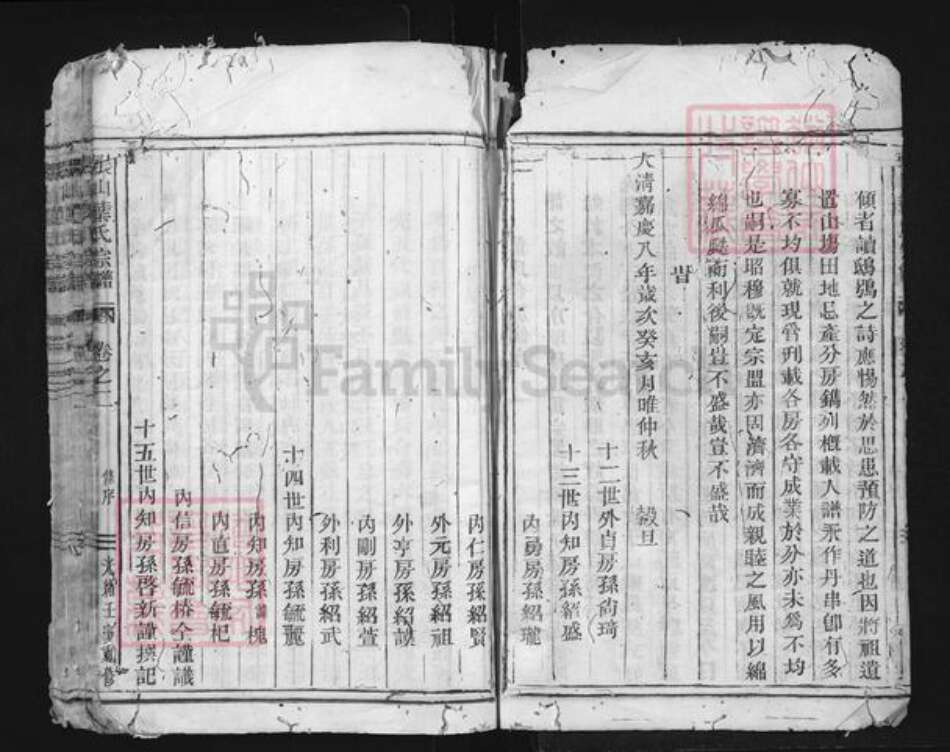 傾者讀鴟鴞之詩應惕然於思患預防之道也因將祖遺
置山塲田地忌產分房鐫列概載人譜永作丹串卽有多
寡不均俱就現管刋載各房各守成業於分亦未爲不均
也嗣是昭穆旣定宗盟亦固濟濟而成親睦之風用以綿
綿瓜瓞而利後嗣豈不盛哉豈不盛哉
旹
大清嘉慶八年歲次癸亥月唯仲秋 穀旦
十二世外貞房孫尙琦
十三世內知房孫紹盛
內勇房孫紹瓏
內仁房孫紹賢
外元房孫紹祖
外亨房孫紹謨
內剛房孫紹萱
外利房孫紹武
十四世內知房孫毓麗
內知房孫 槐
內直房孫毓杞
內信房孫毓椿仝謹議
十五世內知房孫啓新謹撰記
山葉氏宗譜 卷之二 修序 光緒壬寅重修
FamilySearch